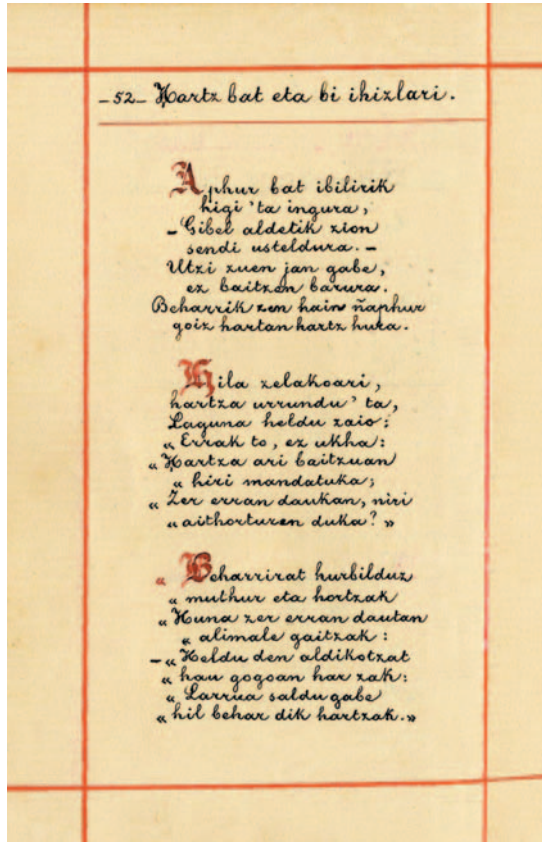 -52- Hartz bat eta bi ihizlari.
Aphur bat ibilirik
higi 'ta ingura,
- Gibel aldetik zion
sendi usteldura. -
Utzi zuen jan gabe,
ez baitzen barura.
Beharrik zen hain ñaphur
goiz hartan hartz hura.
Hila zelakoari,
hartza urrundu' ta,
Laguna heldu zaio:
« Errak to, ez ukha:
« Hartza ari baitzuan
« hiri mandatuka;
« Zer erran daukan, niri
« aithorturen duka? »
« Beharrirat hurbilduz
« muthur eta hortzak
« Huna zer erran dautan
« alimale gaitzak :
- « Heldu den aldikotzat
« hau gogoan har zak:
« Larrua saldu gabe
« hil behar dik hartzak. »